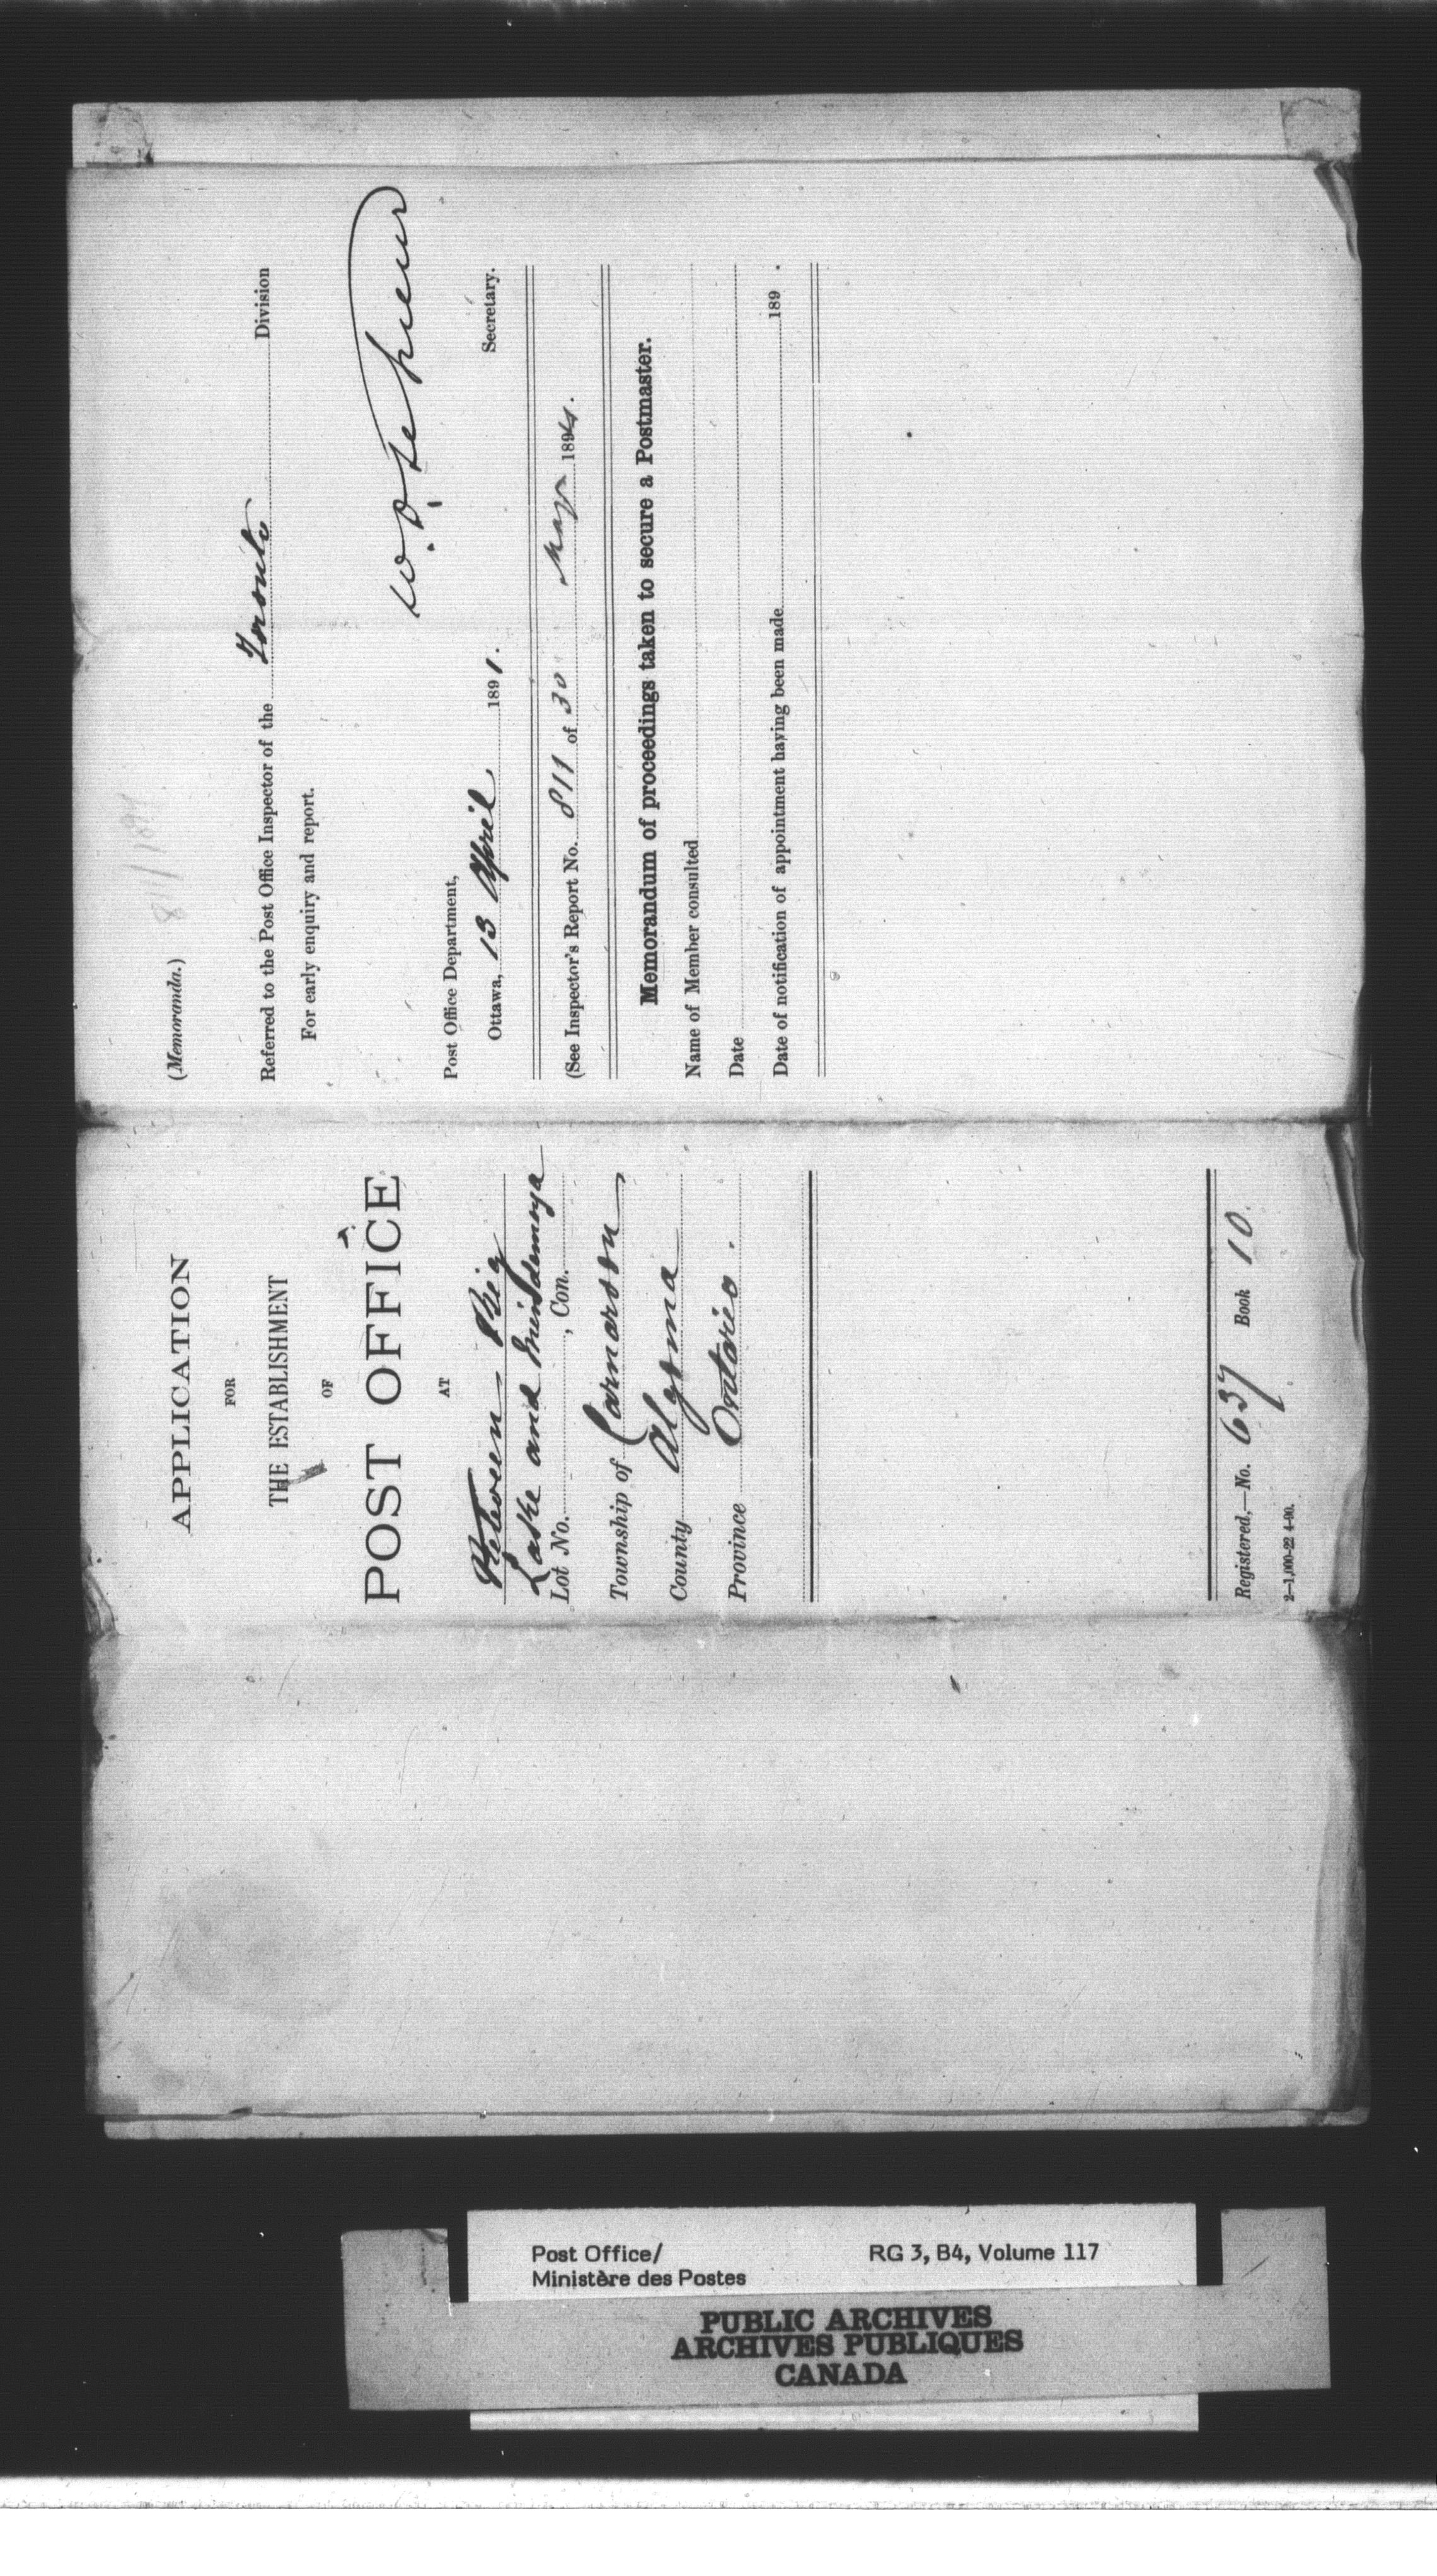 APPLICATION
FOR
THE ESTABLISHMENT
OF
POST OFFICE
AT
Between Big
Lake and Mindemoya
Lot No. , Con.
Township of Carnarson
County Algoma
Province Ontario.
Registered,—No. 637 Book 10.
2—1,000-22 4-90.
(Memoranda.) 811/1894
Referred to the Post Office Inspector of the Toronto Division
For early enquiry and report.
Secretary.
Post Office Department,
Ottawa, 13 April 1891.
(See Inspector's Report No. 811 of 30 May 1894.
Memorandum of proceedings taken to secure a Postmaster.
Name of Member consulted
Date
Date of notification of appointment having been made 189 .
Post Office/ RG 3, B4, Volume 117
Ministère des Postes
PUBLIC ARCHIVES
ARCHIVES PUBLIQUES
CANADA